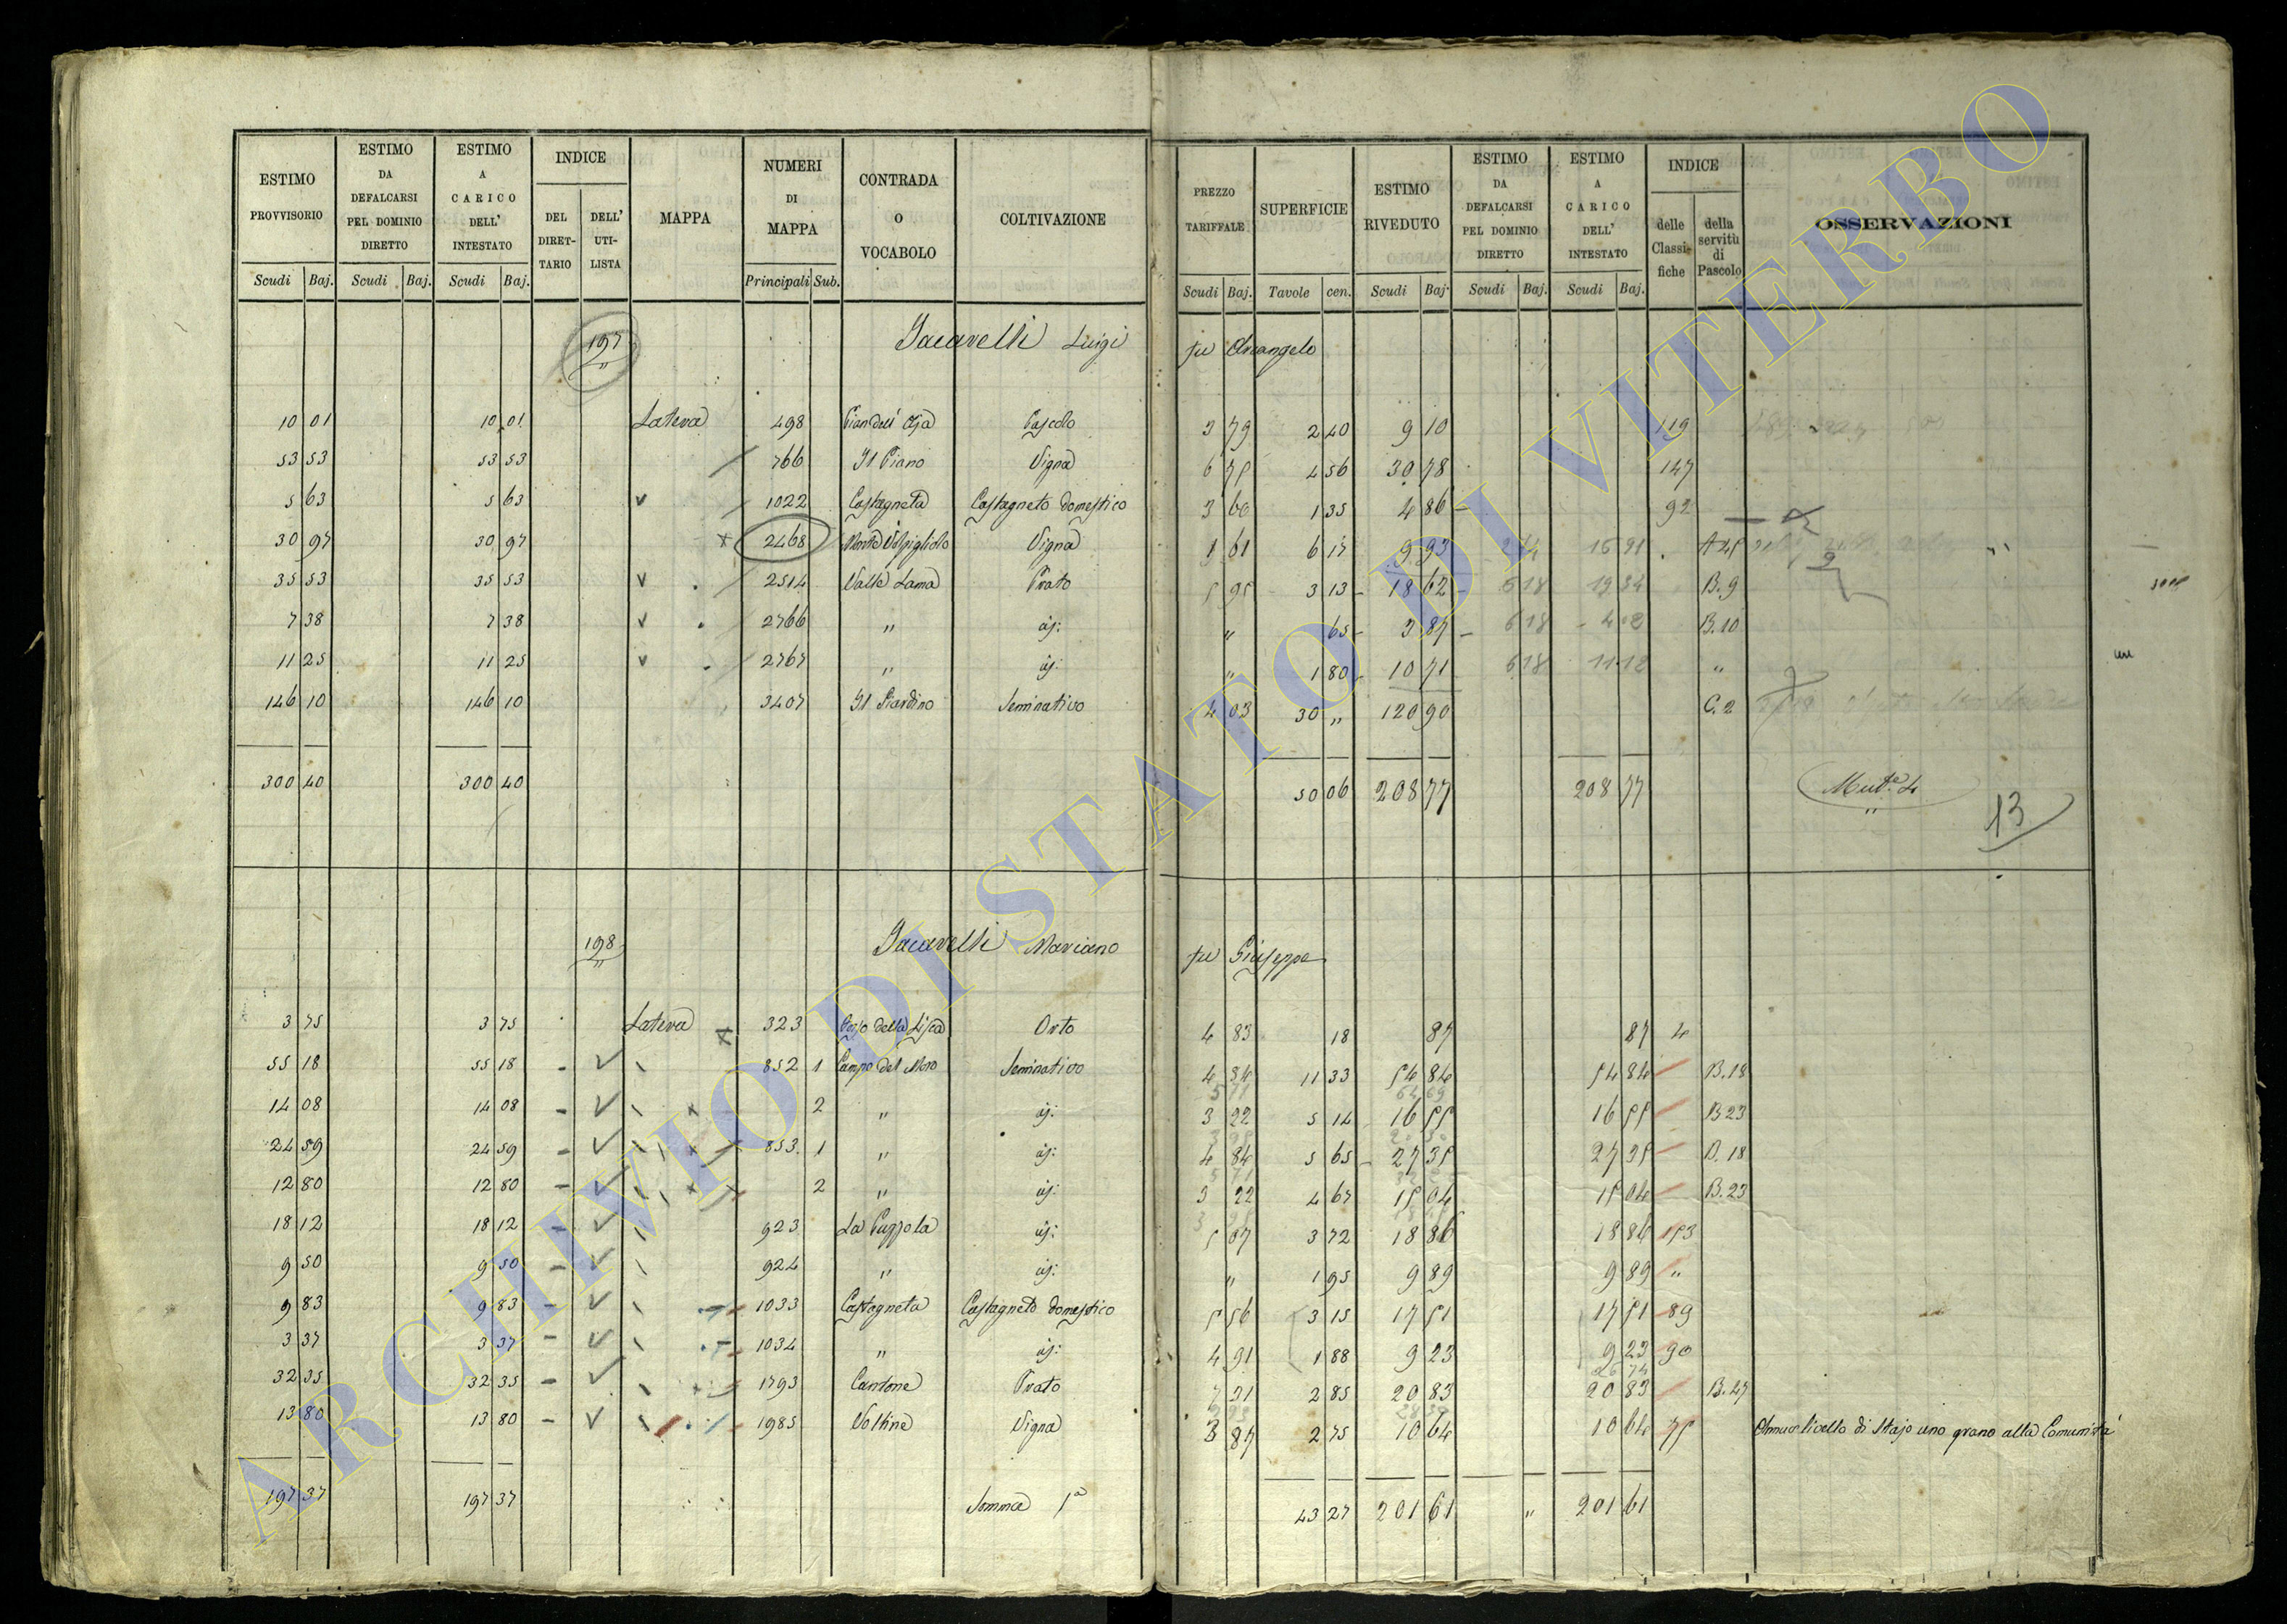 ESTIMO PROVVISORIO | ESTIMO DA DEFALCARSI PEL DOMINIO DIRETTO | ESTIMO A CARICO DELL' INTESTATO | INDICE | MAPPA | NUMERI DI MAPPA | CONTRADA O VOCABOLO | COLTIVAZIONE | PREZZO TARIFFALE | SUPERFICIE | ESTIMO RIVEDUTO | ESTIMO DA DEFALCARSI PEL DOMINIO DIRETTO | ESTIMO A CARICO DELL' INTESTATO | INDICE | OSSERVAZIONI
DEL DIRET-TARIO | DELL' UTI-LISTA | delle Classi-fiche | della servitù di Pascolo
Scudi | Baj. | Scudi | Baj. | Scudi | Baj. | Principali | Sub. | Scudi | Baj. | Tavole | cen. | Scudi | Baj. | Scudi | Baj. | Scudi | Baj.
197 Luigi fu Arcangelo
10 01 | 10 01 | Latera | 498 | Pascolo | 3 79 | 2 40 | 9 10 | 119
53 53 | 53 53 | 766 | Il Piano | Vigna | 6 75 | 4 56 | 30 78 | 147
5 63 | 5 63 | 1022 | Castagneta | Castagneto domestico | 3 60 | 1 35 | 4 86 | 92
30 97 | 30 97 | 2468 | Vigna | 1 61 | 6 17 | 9 93 | 15 91
35 53 | 35 53 | 2514 | Valle Lama | Prato | 5 95 | 3 13 | 18 62 | 6 18 | B. 9
7 38 | 7 38 | 2766 | " | id: | " | 65 | 3 87 | 6 18 | B. 10
11 25 | 11 25 | 2767 | " | id: | " | 1 80 | 10 71 | 6 18 | "
146 10 | 146 10 | 3407 | Il Giardino | Seminativo | 4 03 | 30 " | 120 90 | C. 2
300 40 | 300 40 | 50 06 | 208 77 | 208 77
13
198 Mariano fu Giuseppe
3 75 | 3 75 | Latera | 323 | Orto | 4 83 | 18 | 87 | 87 | 4
55 18 | 55 18 | 852 | 1 | Campo del Moro | Seminativo | 4 84 | 11 33 | 54 84 | 54 84 | B. 18
14 08 | 14 08 | 2 | " | id: | 3 22 | 5 14 | 16 55 | 16 55 | B 23
24 59 | 24 59 | 853 | 1 | " | id: | 4 84 | 5 65 | 27 35 | 27 35 | B. 18
12 80 | 12 80 | 2 | " | id: | 3 22 | 4 67 | 15 04 | 15 04 | B. 23
18 12 | 18 12 | 923 | La Puzzola | id: | 5 07 | 3 72 | 18 86 | 18 86 | 153
9 50 | 9 50 | 924 | " | id: | " | 1 95 | 9 89 | 9 89 | "
9 83 | 9 83 | 1033 | Castagneta | Castagneto domestico | 5 56 | 3 15 | 17 51 | 17 51 | 89
3 37 | 3 37 | 1034 | " | id: | 4 91 | 1 88 | 9 23 | 9 23 | 90
32 35 | 32 35 | 1793 | Cantone | Prato | 7 31 | 2 85 | 20 83 | 20 83 | B. 27
13 80 | 13 80 | 1985 | Voltine | Vigna | 3 87 | 2 75 | 10 64 | 10 64 | 75 | Annuo livello di Stajo uno grano alla Comunità
197 37 | 197 37 | Somma 1ª | 43 27 | 201 61 | " | 201 61
ARCHIVIO DI STATO DI VITERBO